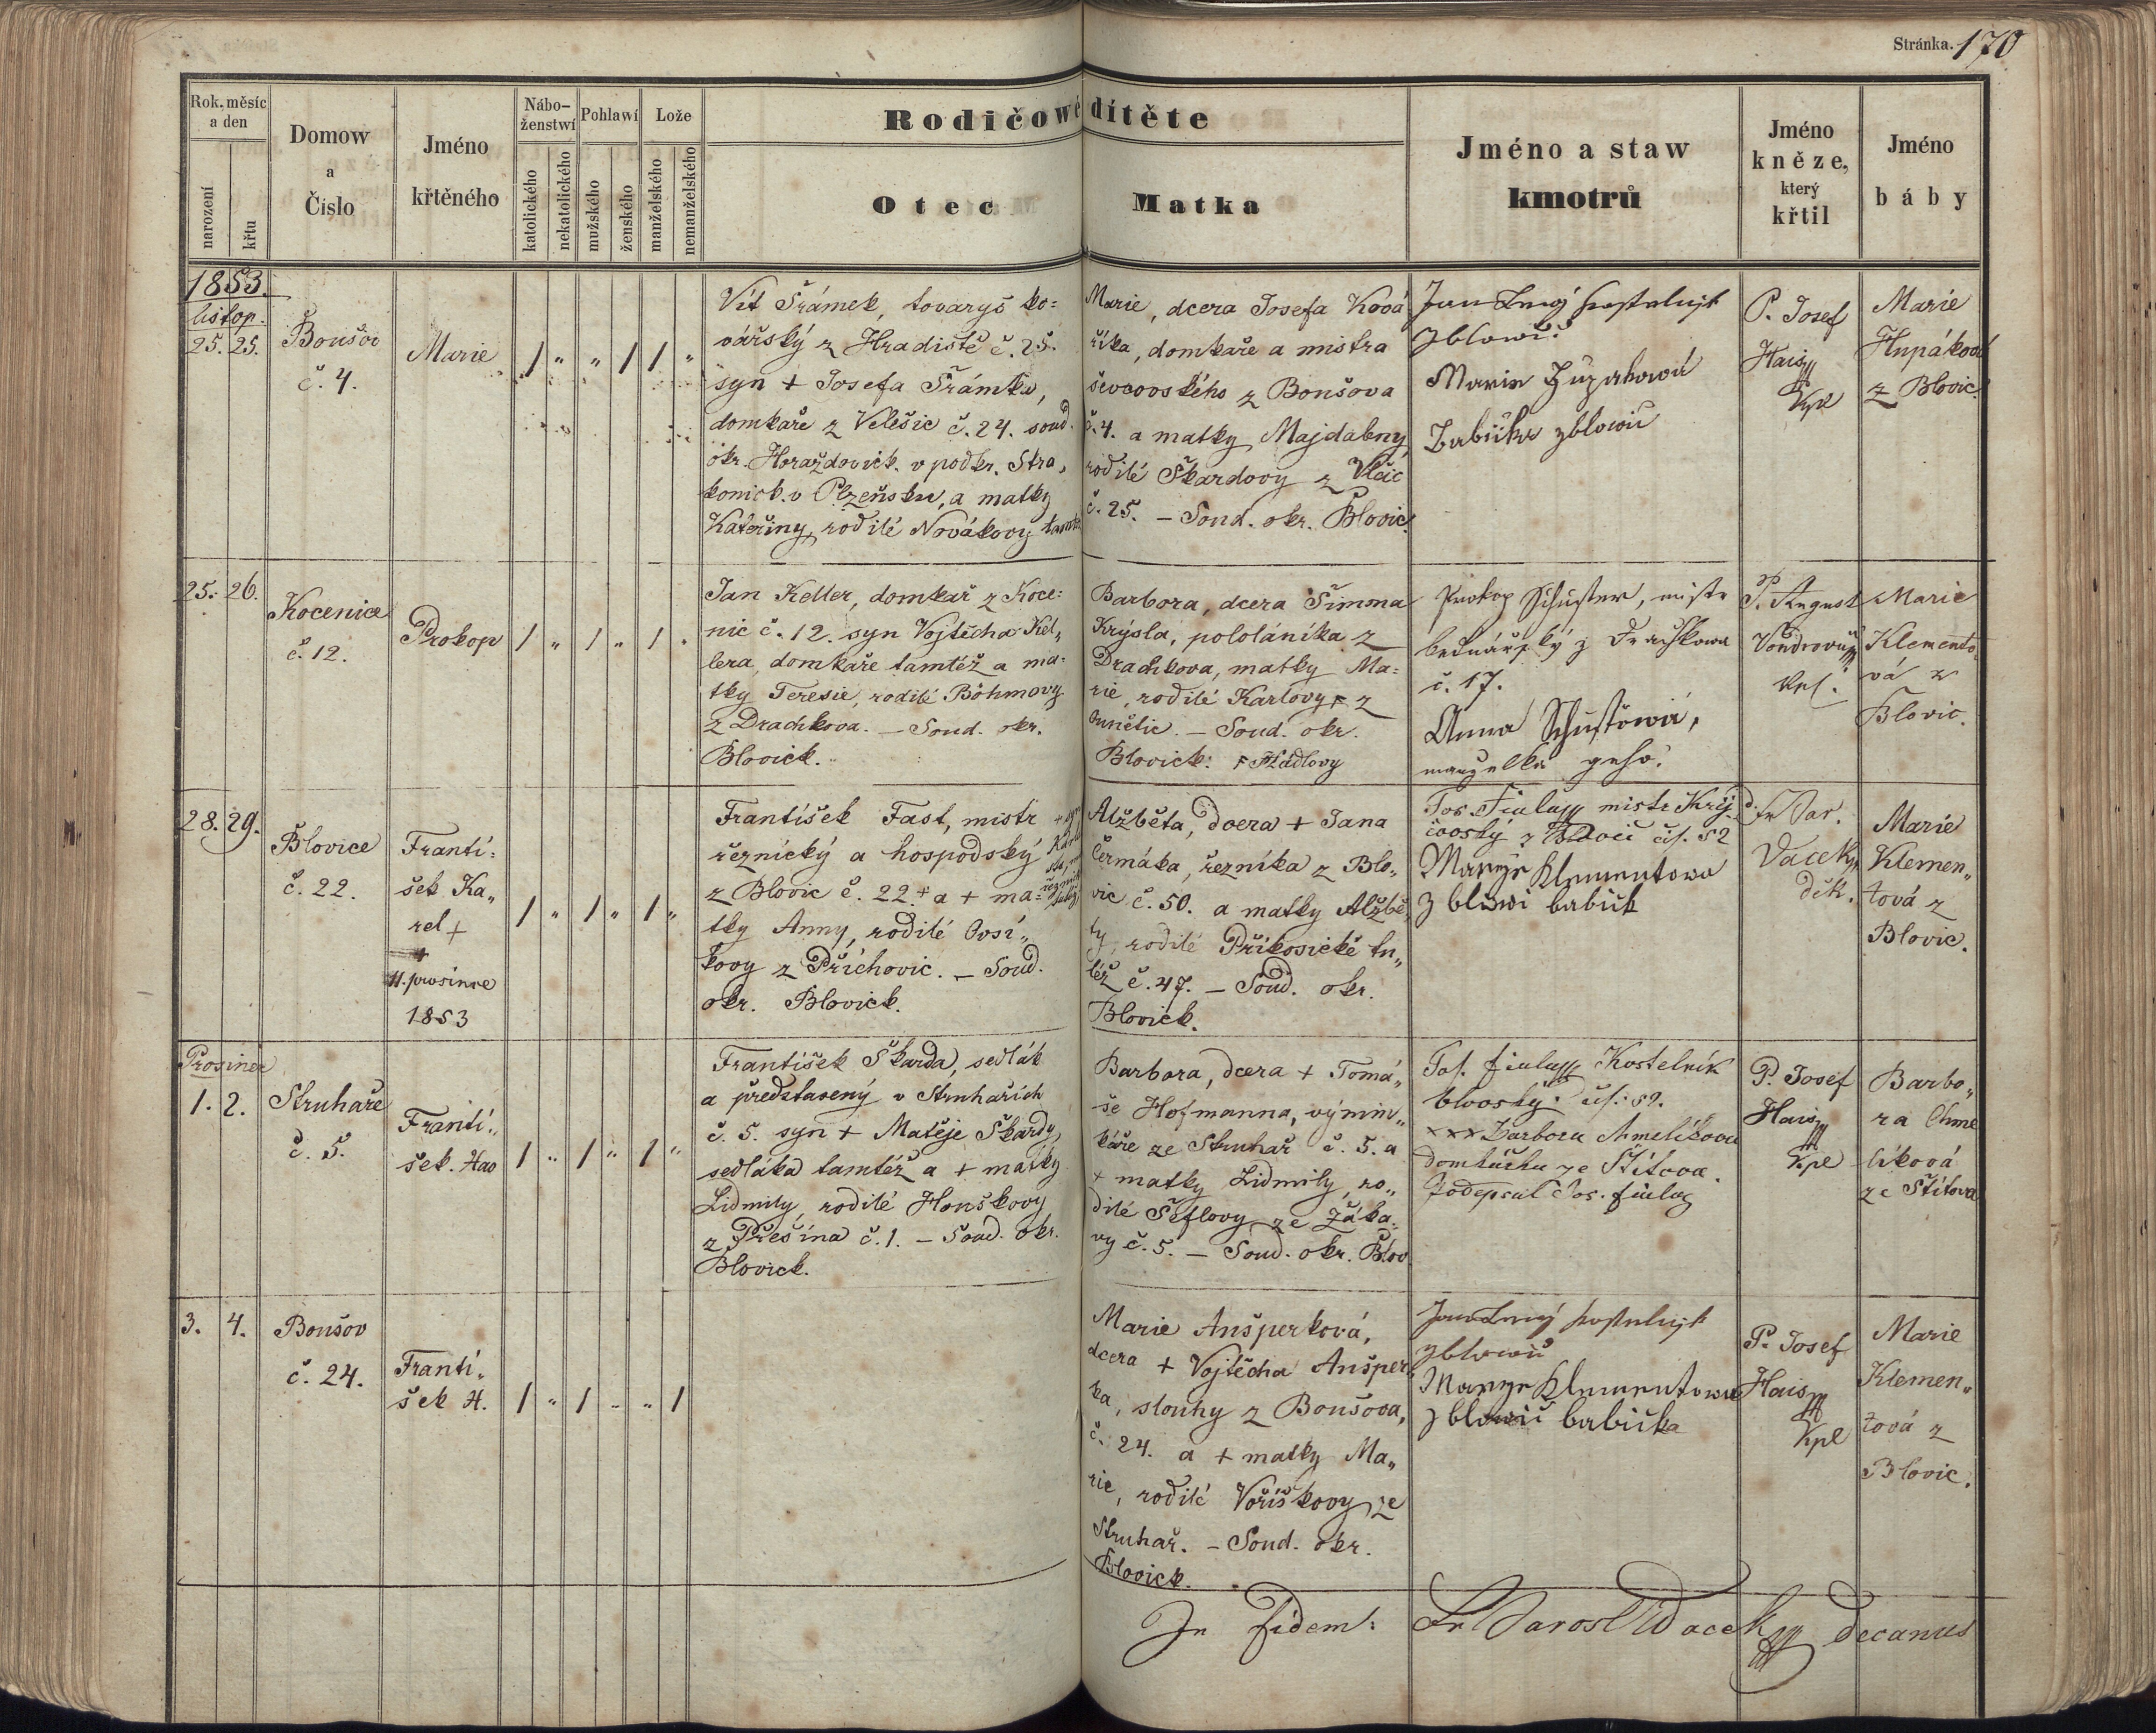 Stránka. 170
Rok, měsíc
a den
narození
křtu
Domow
a
Číslo
Jméno
křtěného
Nábo-
ženstwí
katolického
nekatolického
Pohlawí
mužského
ženského
Lože
manželského
nemanželského
Rodičowé dítěte
Otec
Matka
Jméno a staw
kmotrů
Jméno
kněze,
který
křtil
Jméno
báby
1853.
listop.
25. 25.
Boušov
č. 4.
Marie
1 " " 1 1 "
Vít Šrámek, tovaryš ko=
vářský z Hradiště č. 25.
syn + Josefa Šrámka,
domkaře z Velešic č. 24. soud.
okr. Horažďovick. v podkr. Stra,
konick. v Plzeňsku, a matky
Kateřiny, rodilé Novákovy
Marie, dcera Josefa Ková
říka, domkaře a mistra
ševcovského z Boušova
č. 4. a matky Majdaleny,
rodilé Škardovy z Vlčic
č. 25. – Soud. okr. Blovic.
Jan
Marie
P. Josef
Hais
Kpl
Marie
Hupáková
z Blovic.
25. 26.
Kocenice
č. 12.
Prokop
1 " 1 " 1 "
Jan Keller, domkář z Koce=
nic č. 12. syn Vojtěcha Kel„
lera, domkaře tamtéž a ma=
tky Teresie, rodilé Böhmovy
z Drachkova. – Soud. okr.
Blovick.
Barbora, dcera Šimona
Krýsla, pololáníka z
Drachkova, matky Ma=
rie, rodilé Karlovy z
– Soud. okr.
Blovick.
Prokop Schuster, mistr
bečnářský z Drachkowa
č. 17.
Anna
manželka geho.
P. August
Kpl.
Marie
Klemento„
vá z
Blovic.
28. 29.
Blovice
č. 22.
Franti=
šek Ka„
rel +
11. prosince
1853
1 " 1 " 1 "
František Fast, mistr
řeznický a hospodský
z Blovic č. 22. + a + ma=
tky Anny, rodilé
kovy z Příchovic. – Soud.
okr. Blovick.
Alžběta, dcera + Jana
Čermáka, řezníka z Blo„
vic č. 50. a matky Alžbě„
ty, rodilé Příkosické tu„
též č. 47. – Soud. okr.
Blovick.
Jos. Fiala mistr Krej
čovský z čís. 52
Marye Klementowa
z blowic babick
Fr. Jar.
Vacek
děk.
Marie
Klemen„
tová z
Blovic.
Prosinec
1. 2.
Struhaře
č. 5.
Franti„
šek. Xav
1 " 1 " 1 "
František Škarda, sedlák
a představený v Struhařích
č. 5. syn + Matěje Škardy,
sedláka tamtéž a + matky
Lidmily, rodilé Honškovy
z Přešína č. 1. – Soud. okr.
Blovick.
Barbora, dcera + Tomá„
še Hofmanna, výmin„
káře ze Struhař č. 5. a
+ matky Lidmily, ro„
dilé Šeflovy ze Žáka„
vy č. 5. – Soud. okr. Blov.
Jos. fiala Kostelník
blovský čís. 52.
xxx Barbora Chmelíkova
ze Štítova.
Podepsal Jos. fiala
P. Josef
Hais
Kpl
Barbo„
ra Chme
líková
ze Štítova
3. 4.
Boušov
č. 24.
Franti„
šek X.
1 " 1 " " 1
Marie Anšperková,
dcera + Vojtěcha Anšper
ka, slouhy z Boušova,
č. 24. a + matky Ma„
rie, rodilé Voříškovy ze
Struhař. – Soud. okr.
Blovick.
Jan
Marye Klementowa
z blowic babička
P. Josef
Hais
Kpl
Marie
Klemen„
tová z
Blovic.
In fidem: Fr Jarosl Wacek decanus